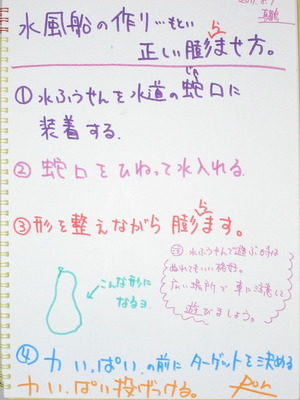 水風船の作り…もとい
正しい膨らませ方。
①水ふうせんを水道の蛇口に
装着する.
②蛇口をひねって水入れる.
③形を整えながら膨らます。
こんな形に
なるヨ
注 水ふうせんで遊ぶ時は
ぬれてもいい格好。
広い場所で車に注意して
遊びましょう。
④力いっぱいの前にターゲットを決める
力いっぱい投げつける。